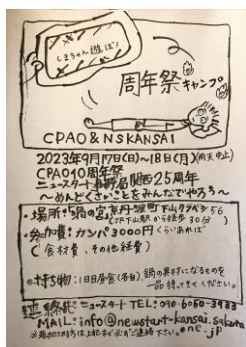 しまちゃん遊ぼ!
周年祭キャンプ
CPAO&NSKANSAI
2023年9月17日(日)~18日(月)(雨天中止)
CPAO10周年祭
ニュースタート事務局関西25周年
~めんどくさいことをみんなでやろう~
・場所:"鍋の宮"京丹波町下山クラベシ56
(JR下山駅から徒歩30分)
・参加費:カンパ3000円くらいあれば
(食材費、その他経費)
・持ち物:1日目昼食(各自)鍋の具材になるものを
一品持ってきてください。
連絡先:ニュースタートTEL:090-6050-3933
MAIL:info@newstart-kansai.sakura
.ne.jp
※参加の方は上記まで必ずご連絡下さい。